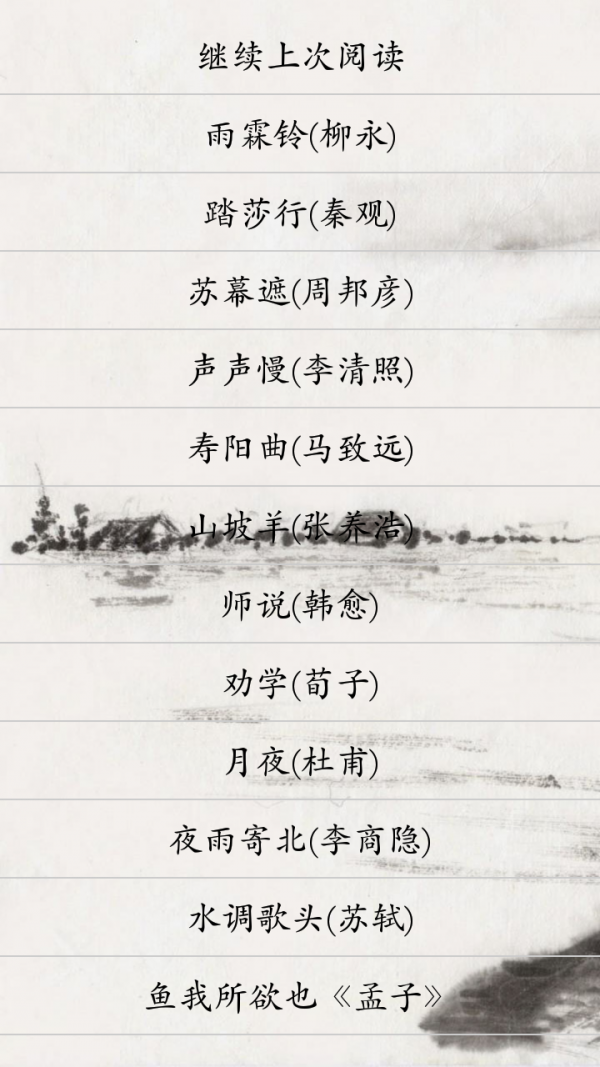 继续上次阅读
雨霖铃(柳永)
踏莎行(秦观)
苏幕遮(周邦彦)
声声慢(李清照)
寿阳曲(马致远)
山坡羊(张养浩)
师说(韩愈)
劝学(荀子)
月夜(杜甫)
夜雨寄北(李商隐)
水调歌头(苏轼)
鱼我所欲也《孟子》